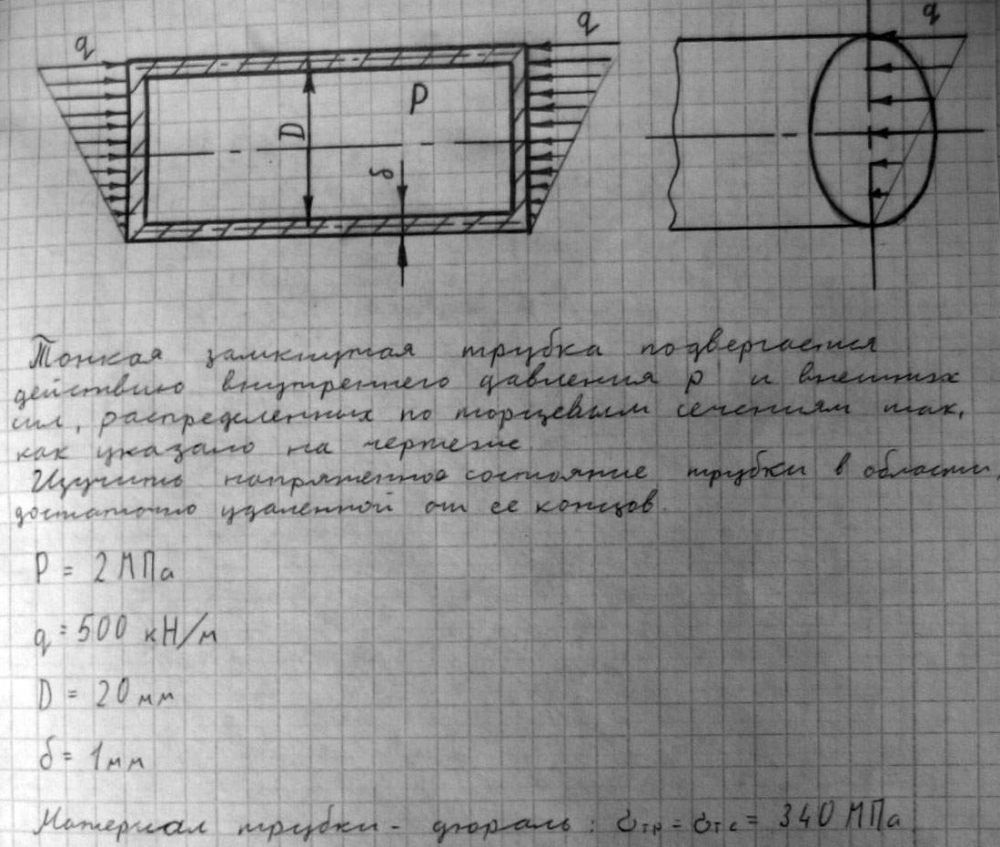 q
q
q
P
D
δ
Тонкая замкнутая трубка подвергается
действию внутреннего давления p и внешних
сил, распределенных по торцевым сечениям так,
как указано на чертеже
Изучить напряженное состояние трубки в области,
достаточно удаленной от ее концов.
P = 2 МПа
q = 500 кН/м
D = 20 мм
δ = 1 мм
Материал трубки - дюраль: σтр = σтс = 340 МПа